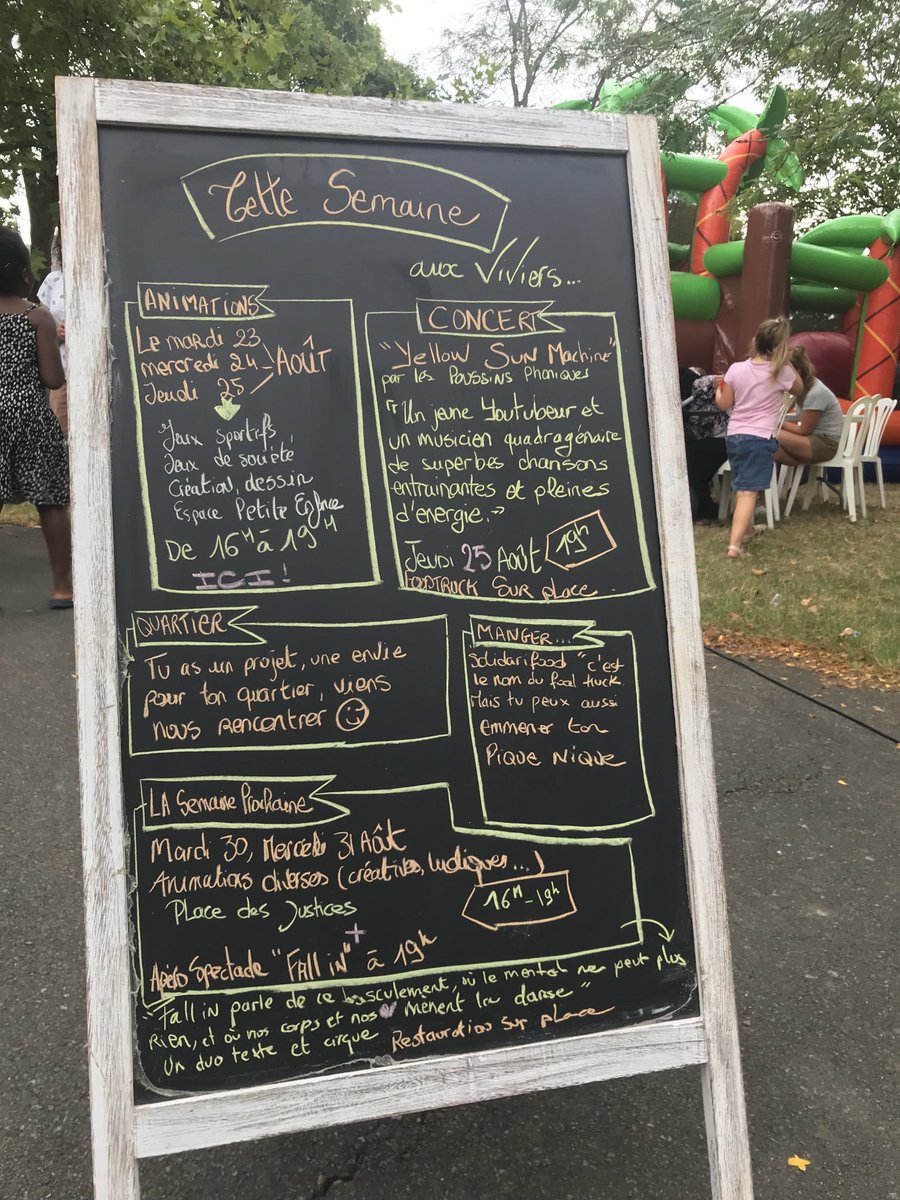 Cette Semaine
aux Viviers...
ANIMATIONS
Le mardi 23
mercredi 24 AOÛT
Jeudi 25
Jeux sportifs
Jeux de société
Création, dessin
Espace Petite Enfance
De 16H à 19H
ICI !
CONCERT
"Yellow Sun Machine"
par les Poussins Phoniques
"Un jeune Youtubeur et
un musicien quadragénaire
de superbes chansons
entrainantes et pleines
d'énergie."
Jeudi 25 Août 19h
FOODTRUCK Sur place
QUARTIER
Tu as un projet, une envie
pour ton quartier, viens
nous rencontrer ☺
MANGER...
Solidarifood "c'est
le nom du food truck.
Mais tu peux aussi
emmener ton
Pique Nique
LA Semaine Prochaine
Mardi 30, Mercredi 31 Août
Animations diverses (créatives, ludiques...)
Place des Justices
16H-19h
+
Apéro Spectacle "Fall in" à 19h
"Fall in parle de ce basculement, où le mental ne peut plus
rien, et où nos corps et nos ♥ mènent la danse"
Un duo texte et cirque Restauration sur place